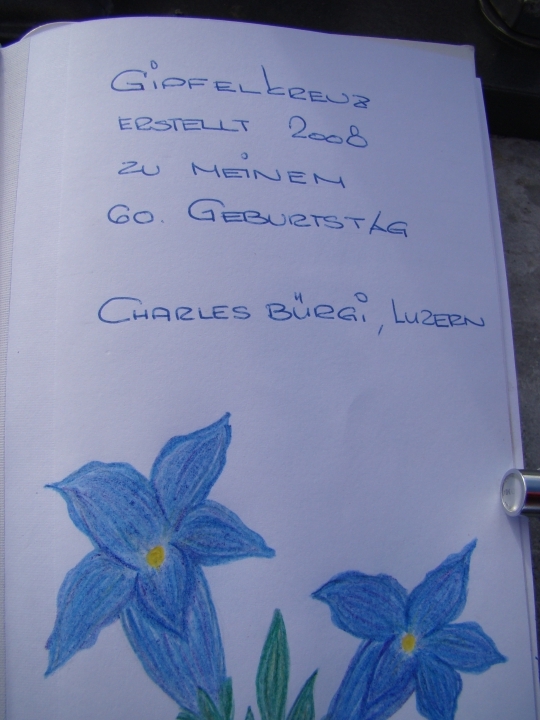 GiPFELKREUZ
ERSTELLT 2008
ZU MEiNEM
60. GEBURTSTAG
CHARLES BÜRGi, LUZERN